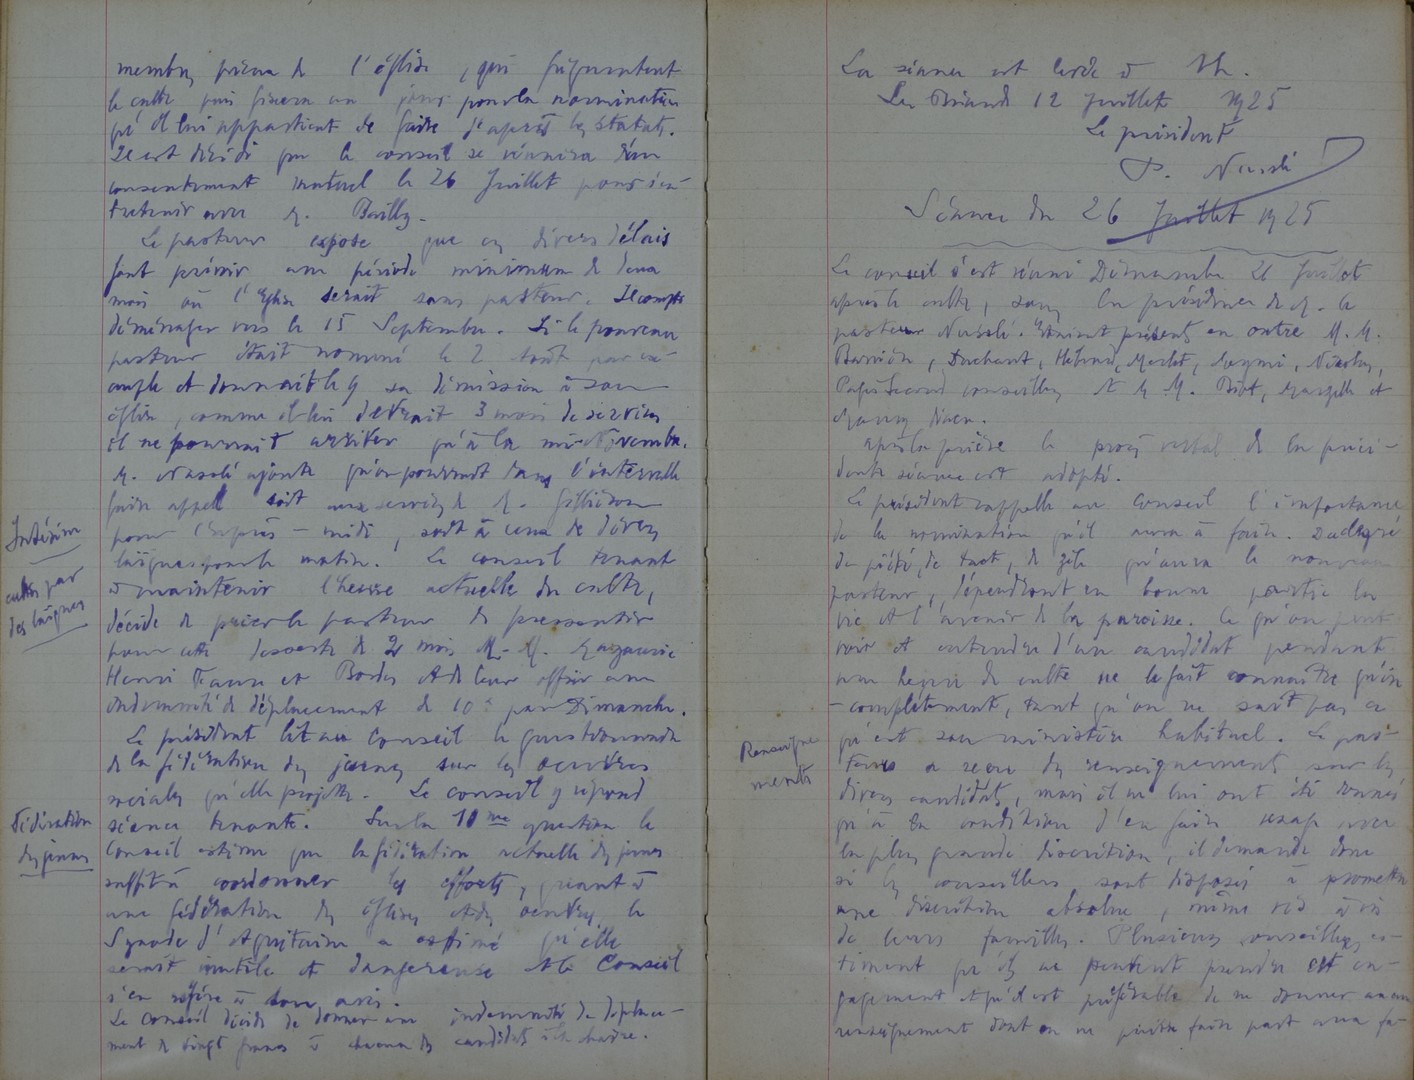 membres présents de l'église, qui fréquentent
le culte puis fixera un jour pour la nomination
qu'il lui appartient de faire d'après les statuts.
Il est décidé que le conseil se réunira d'un
consentement mutuel le 26 Juillet pour s'en-
tretenir avec M. Bailly.
Le pasteur expose que ces divers délais
font prévoir une période minimum de deux
mois où l'Eglise serait sans pasteur. Il compte
déménager vers le 15 Septembre. Si le nouveau
pasteur était nommé le 2 août par ex-
emple et donnait le 9 sa démission à son
église, comme il lui devrait 3 mois de services
il ne pourrait arriver qu'à la mi-Novembre.
M. Nusslé ajoute qu'on pourrait dans l'intervalle
faire appel soit aux services de M.
pour l'après-midi, soit à ceux de divers
laïques pour le matin. Le conseil tenant
à maintenir l'heure actuelle du culte,
décide de prier le pasteur de pressentir
pour cette desserte de 2 mois M. M.
Henri Faure et Bordes et de leur offrir une
indemnité de déplacement de 10 f par Dimanche.
Le président lit au Conseil le questionnaire
de la fédération des jeunes sur les oeuvres
sociales qu'elle projette. Le conseil y répond
séance tenante. Sur la 10me question le
Conseil estime que la fédération actuelle des jeunes
suffit à coordonner les efforts, quant à
une fédération des églises et des oeuvres, le
Synode d'Aquitaine a estimé qu'elle
serait inutile et dangereuse et le Conseil
s'en réfère à son avis.
Le Conseil décide de donner une indemnité de déplace-
ment de vingt francs à chacun des candidats à la chaire.
Intérim
cultes par
des laïques
Fédération
des jeunes
La séance est levée à 11h.
Le 12 Juillet 1925
Le président
P. Nusslé
Séance du 26 Juillet 1925
Le conseil s'est réuni Dimanche 26 Juillet
après le culte, sous la présidence de M. le
pasteur Nusslé. Etaient présents en outre M. M.
Barrière, Duchant, Hébrard, Merlet, Meymi, Nicolas,
conseillers et M. M. Biot, et
diacres.
Après la prière le procès verbal de la précé-
dente séance est adopté.
Le président rappelle au Conseil l'importance
de la nomination qu'il aura à faire. Du degré
de piété, de tact, de zèle qu'aura le nouveau
pasteur, dépendront en bonne partie la
vie et l'avenir de la paroisse. Ce qu'on peut
voir et entendre d'un candidat pendant
une heure de culte ne le fait connaître qu'in-
-complètement, tant qu'on ne sait pas ce
qu'est son ministère habituel. Le pas-
teur a reçu des renseignements sur les
divers candidats, mais ils ne lui ont été donnés
qu'à la condition d'en faire usage avec
la plus grande discrétion, il demande donc
si les conseillers sont disposés à promettre
une discrétion absolue, même vis à vis
de leurs familles. Plusieurs conseillers es-
timent qu'ils ne peuvent prendre cet en-
gagement et qu'il est préférable de ne donner aucun
renseignement dont on ne puisse faire part aux fa-
Renseigne
ments